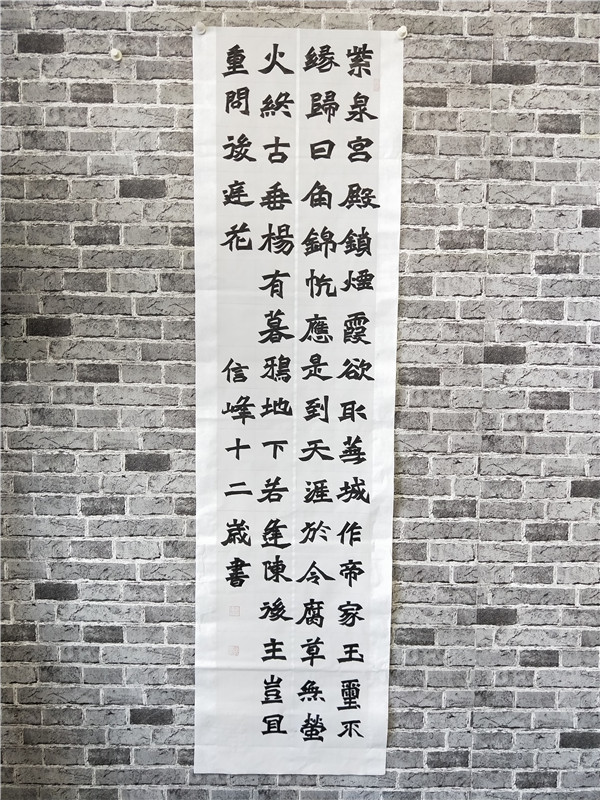 紫泉宮殿鎖煙霞欲取蕪城作帝家玉璽不
緣歸日角錦帆應是到天涯於今腐草無螢
火終古垂楊有暮鴉地下若逢陳後主豈宜
重問後庭花 信峰十二歲書